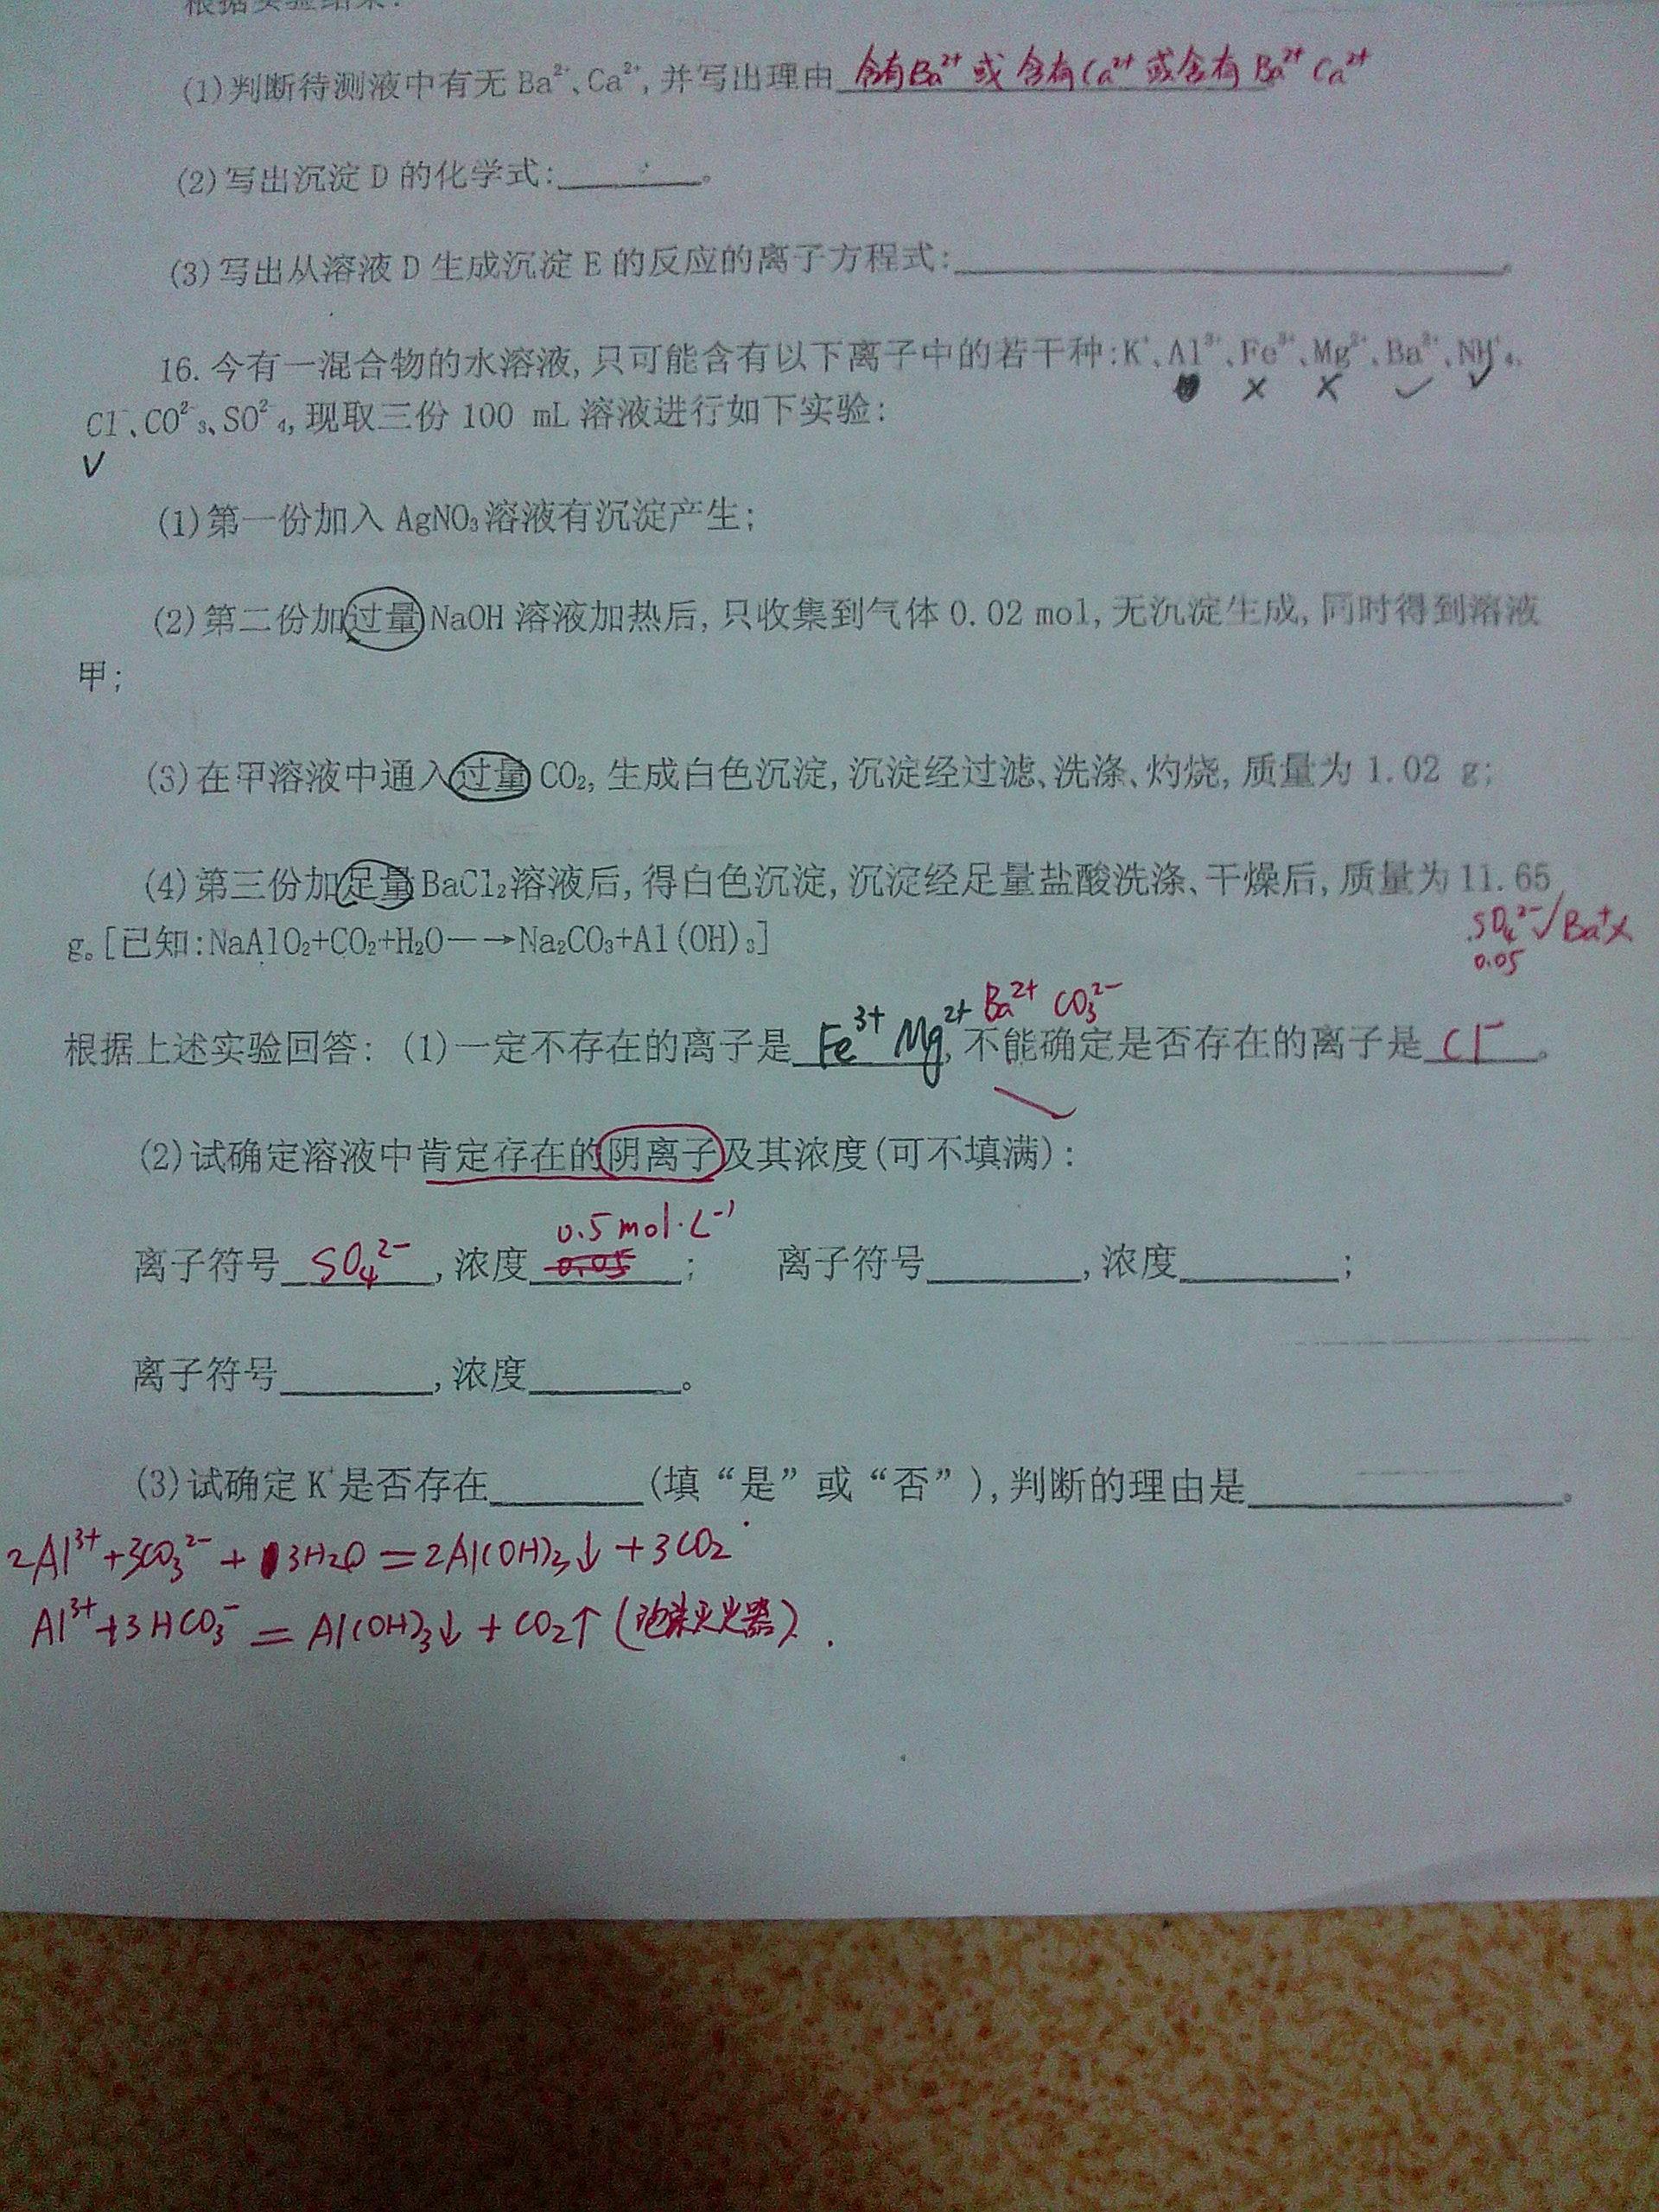 根据实验结果:
(1)判断待测液中有无Ba²⁺、Ca²⁺,并写出理由 含有Ba²⁺或 含有Ca²⁺ 或含有 Ba²⁺ Ca²⁺
(2)写出沉淀D的化学式:________。
(3)写出从溶液D生成沉淀E的反应的离子方程式:________________。
16.今有一混合物的水溶液,只可能含有以下离子中的若干种:K⁺、Al³⁺、Fe³⁺、Mg²⁺、Ba²⁺、NH⁺₄、
× × ✓ ✓
Cl⁻、CO²⁻₃、SO²⁻₄,现取三份100 mL溶液进行如下实验:
✓
(1)第一份加入AgNO₃溶液有沉淀产生;
(2)第二份加过量NaOH溶液加热后,只收集到气体0.02 mol,无沉淀生成,同时得到溶液
甲;
(3)在甲溶液中通入过量CO₂,生成白色沉淀,沉淀经过滤、洗涤、灼烧,质量为1.02 g;
(4)第三份加足量BaCl₂溶液后,得白色沉淀,沉淀经足量盐酸洗涤、干燥后,质量为11.65
SO₄²⁻✓ Ba⁺×
g。[已知:NaAlO₂+CO₂+H₂O—→Na₂CO₃+Al(OH)₃]
0.05
Ba²⁺ CO₃²⁻
根据上述实验回答: (1)一定不存在的离子是 Fe³⁺ Mg²⁺,不能确定是否存在的离子是 Cl⁻。
(2)试确定溶液中肯定存在的阴离子及其浓度(可不填满):
0.5mol·L⁻¹
离子符号 SO₄²⁻,浓度 0.05; 离子符号________,浓度________;
离子符号________,浓度________。
(3)试确定K⁺是否存在________(填“是”或“否”),判断的理由是________________。
2Al³⁺+3CO₃²⁻+3H₂O=2Al(OH)₃↓+3CO₂
Al³⁺+3HCO₃⁻=Al(OH)₃↓+CO₂↑(泡沫灭火器).